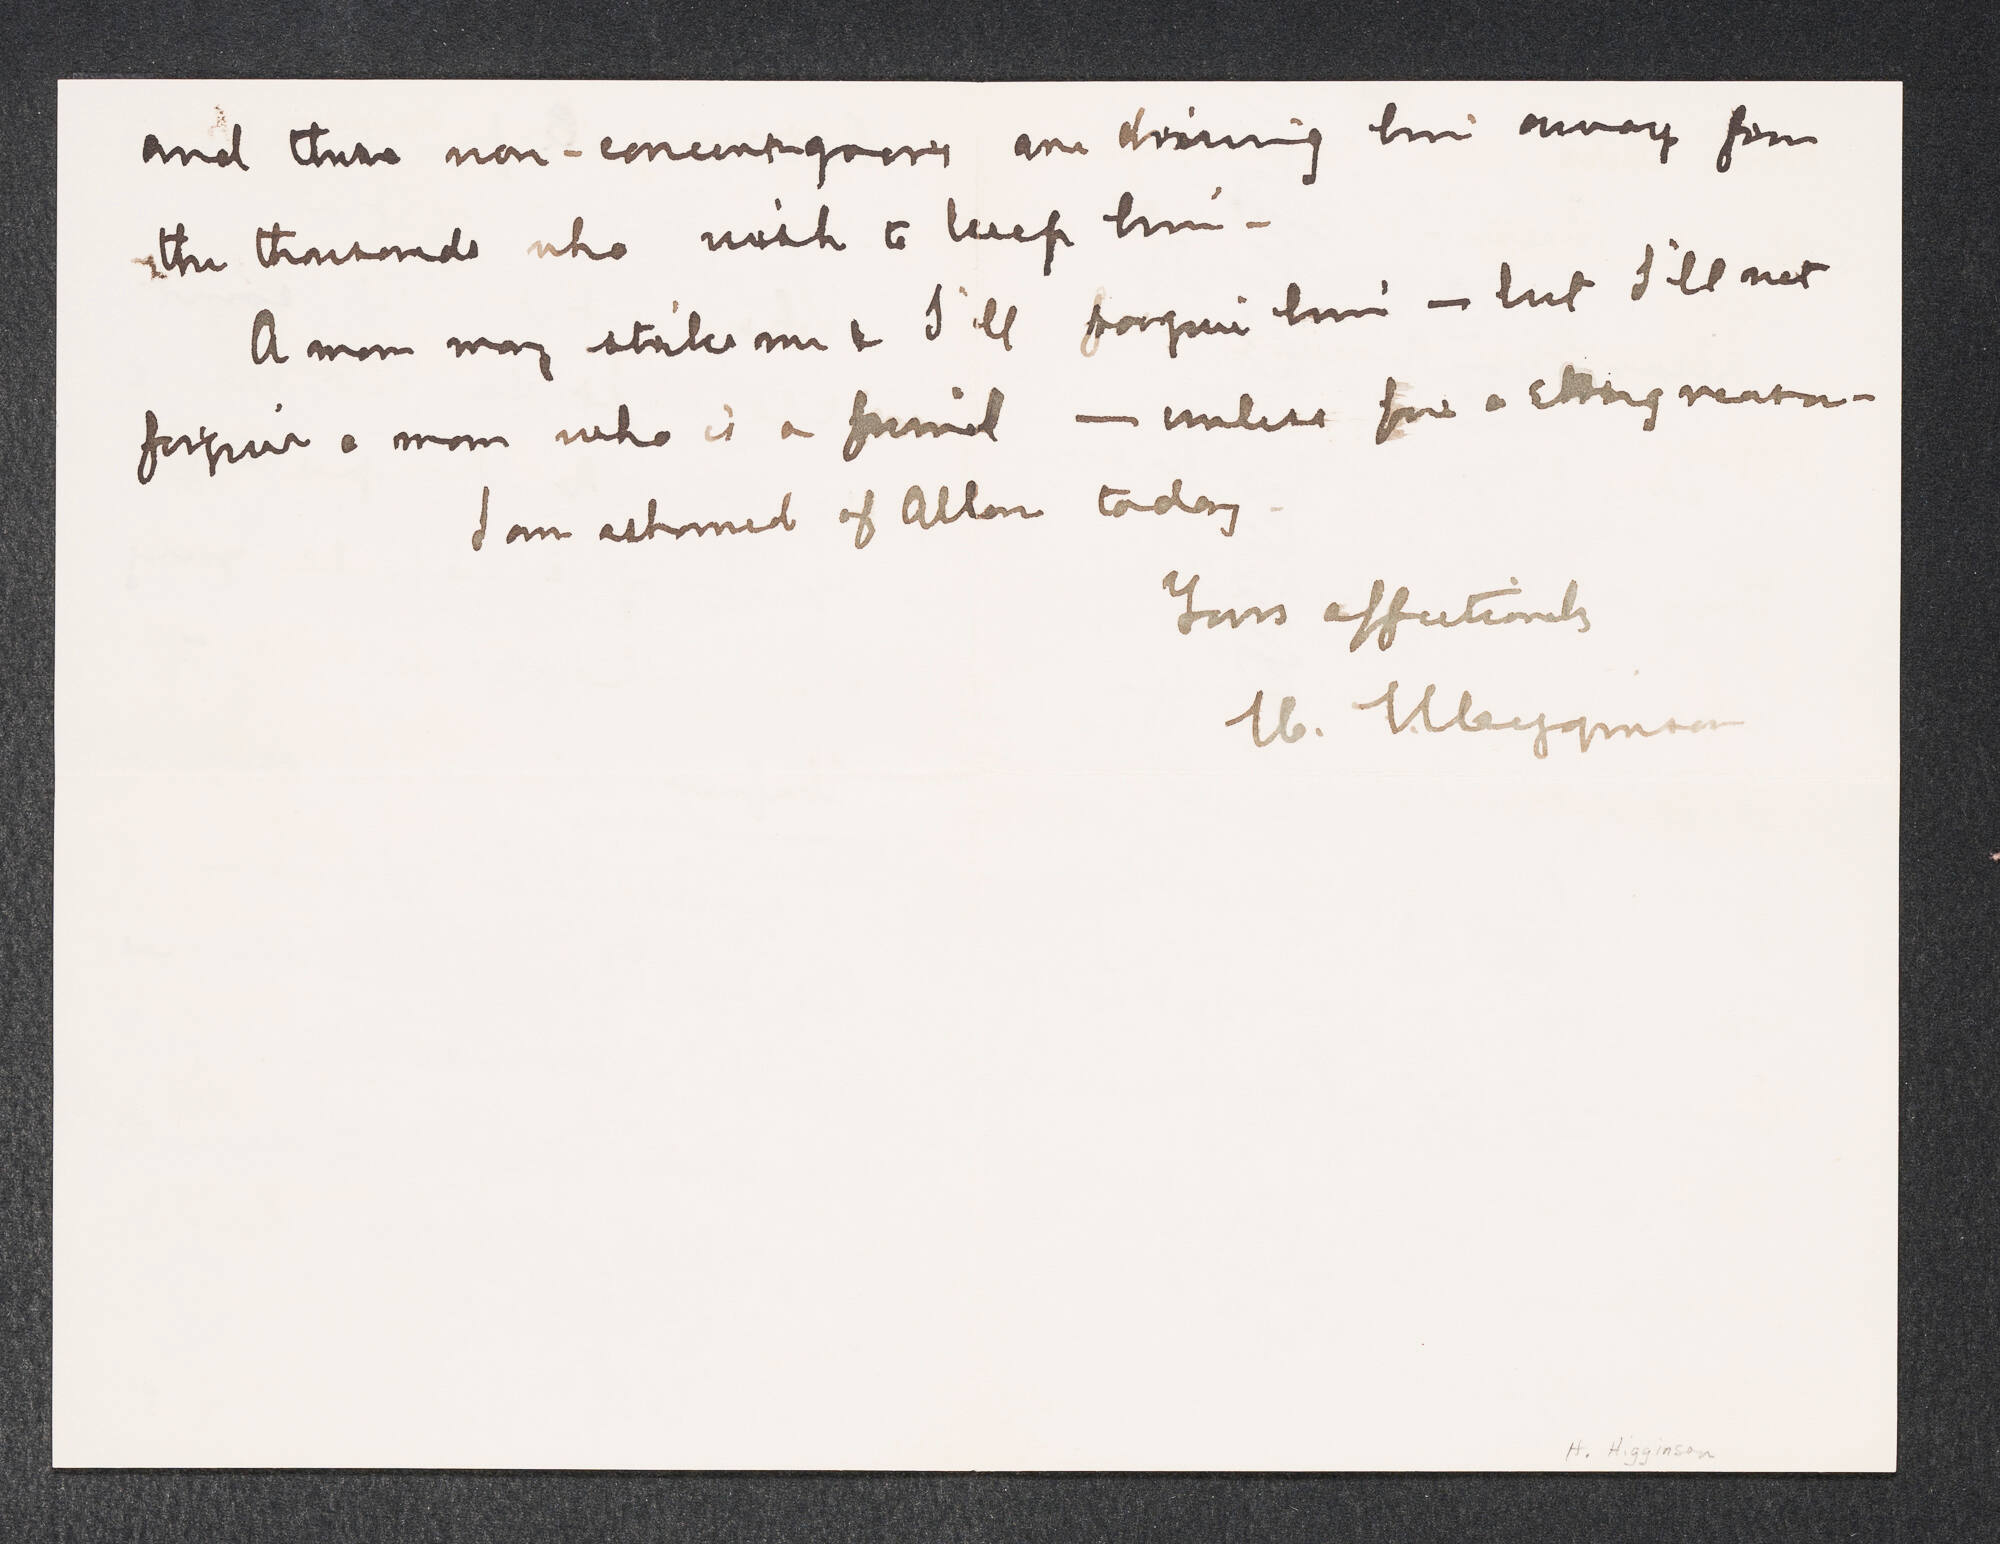 and these non-concert-goers are driving him away from
the thousands who wish to keep him -
A man may strike me & I'll forgive him — but I'll not
forgive a man who is a friend — unless for a strong reason -
I am ashamed of Allan today -
Yours affectionately
H. L. Higginson
H. Higginson